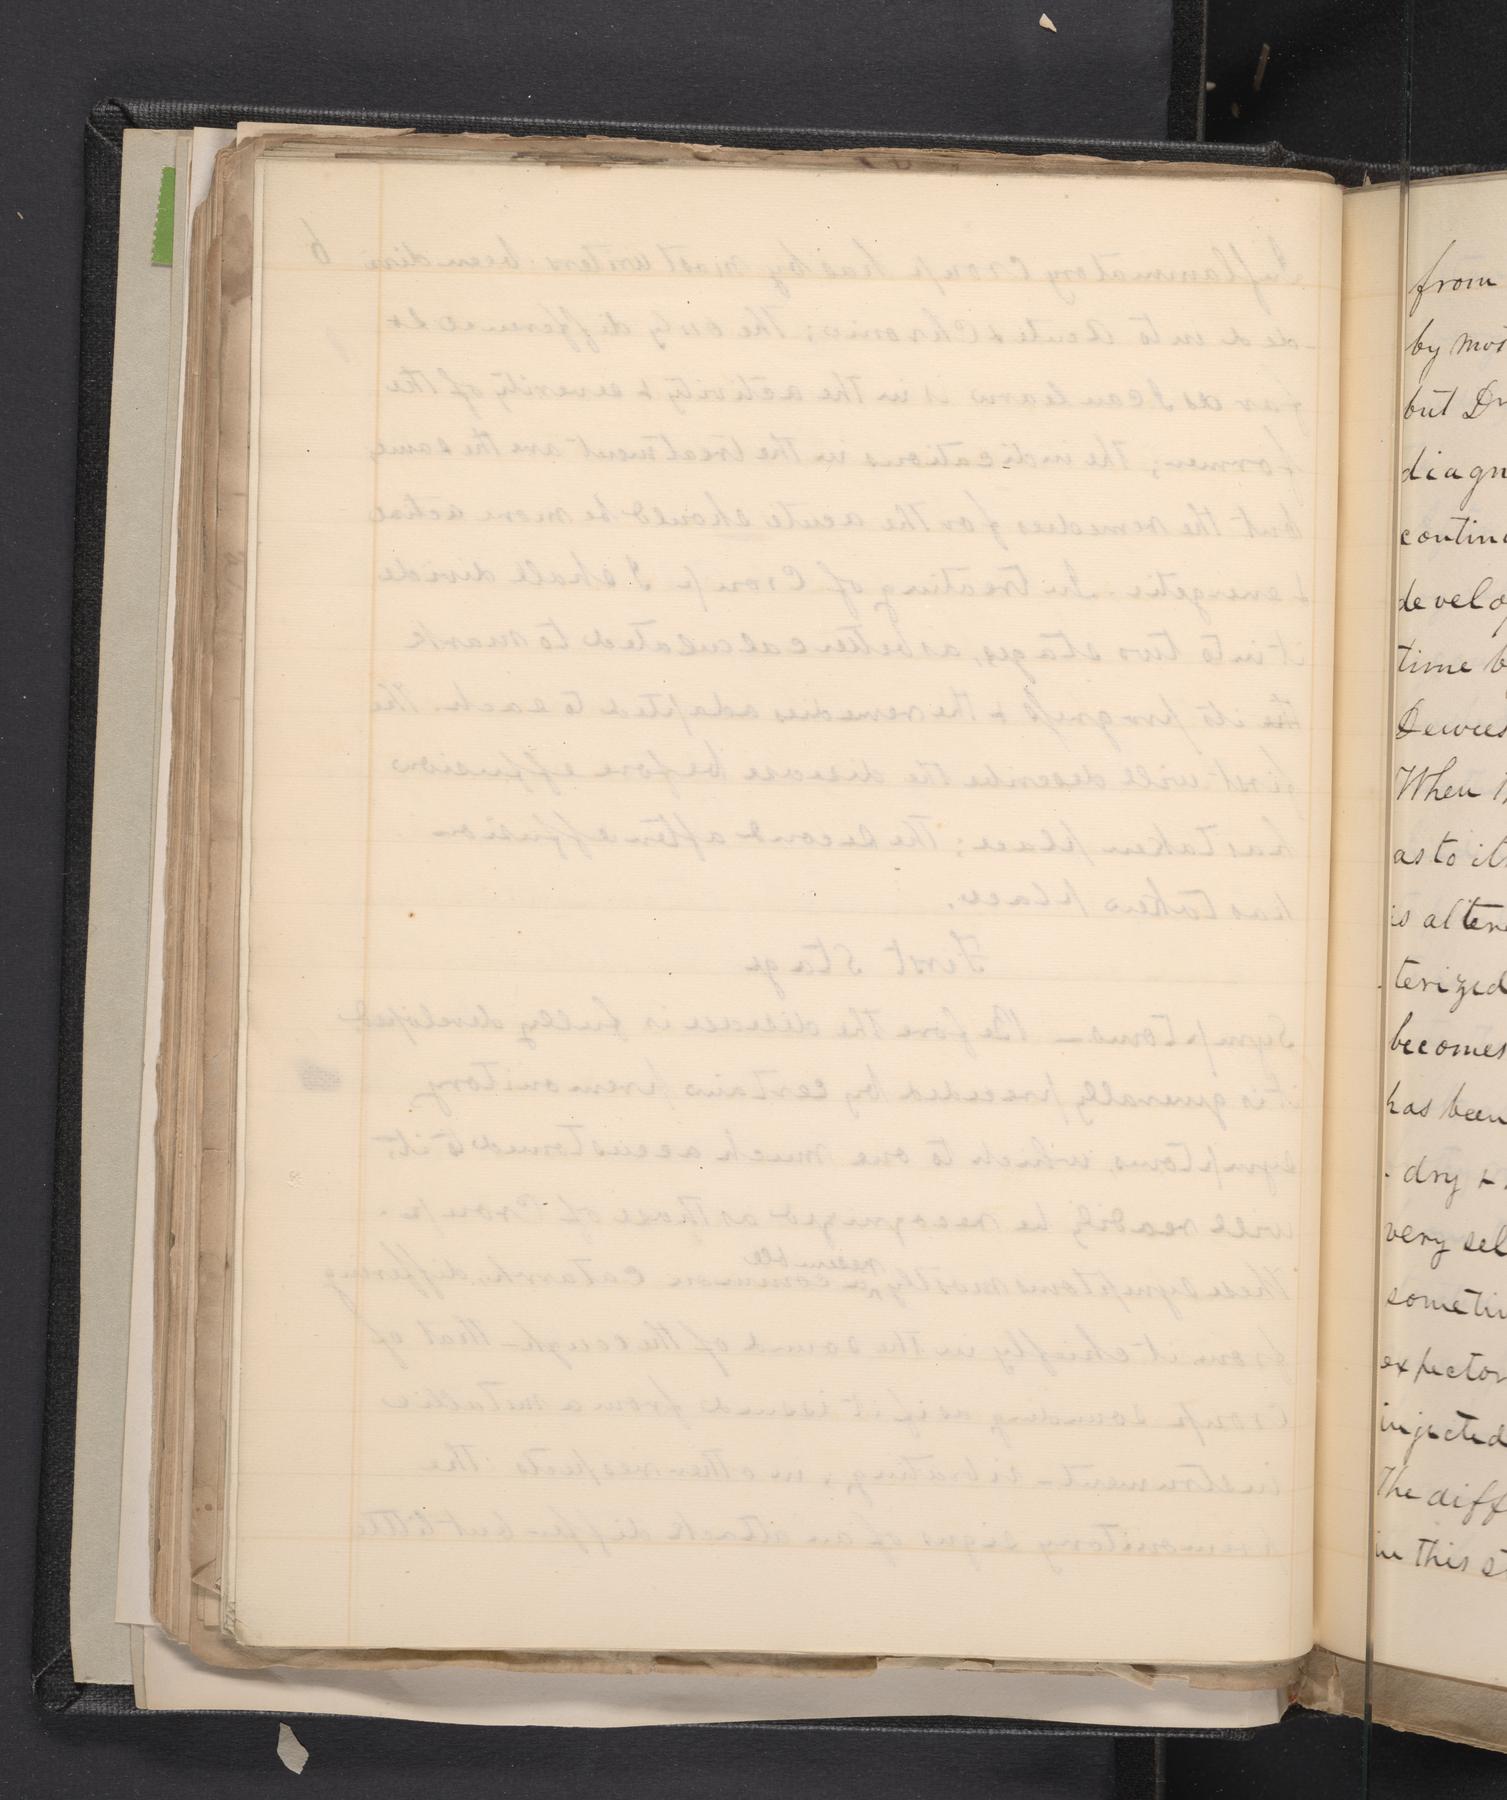 6
Inflammatory Croup has by most writers been divi
-ded into Acute & Chronic; the only difference so
far as I can learn is in the activity & severity of the
former; the indications in the treatment are the same,
but the remedies for the acute should be more active
& energetic. In treating of Croup I shall divide
it into two stages, as better calculated to mark
the its progress & the remedies adapted to each. The
first will describe the disease before effusion
has taken place; the second after effusion
has taken place.
First Stage
Symptoms — Before the disease is fully developed
it is generally preceded by certain premonitory
symptoms, which, to one much accustomed to it,
will readily be recognized as those of Croup.
These symptoms mostly resemble a common catarrh, differing
from it chiefly in the sound of the cough — that of
Croup sounding as if it issued from a metallic
instrument – vibrating; in other respects the
premonitory signs of an attack differ but little
from
by mos
but Dr
diagn
contin
develo
time b
Dewees
When
as to it
is alter
terized
becomes
has been
dry &
very sel
sometim
expector
injected
The diff
in this st